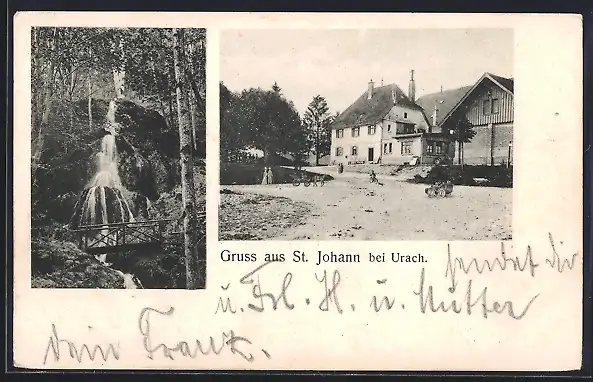 Gruss aus St. Johann bei Urach.
sendet Dir
u. Frl. H. u. Mutter
Dein Franz.